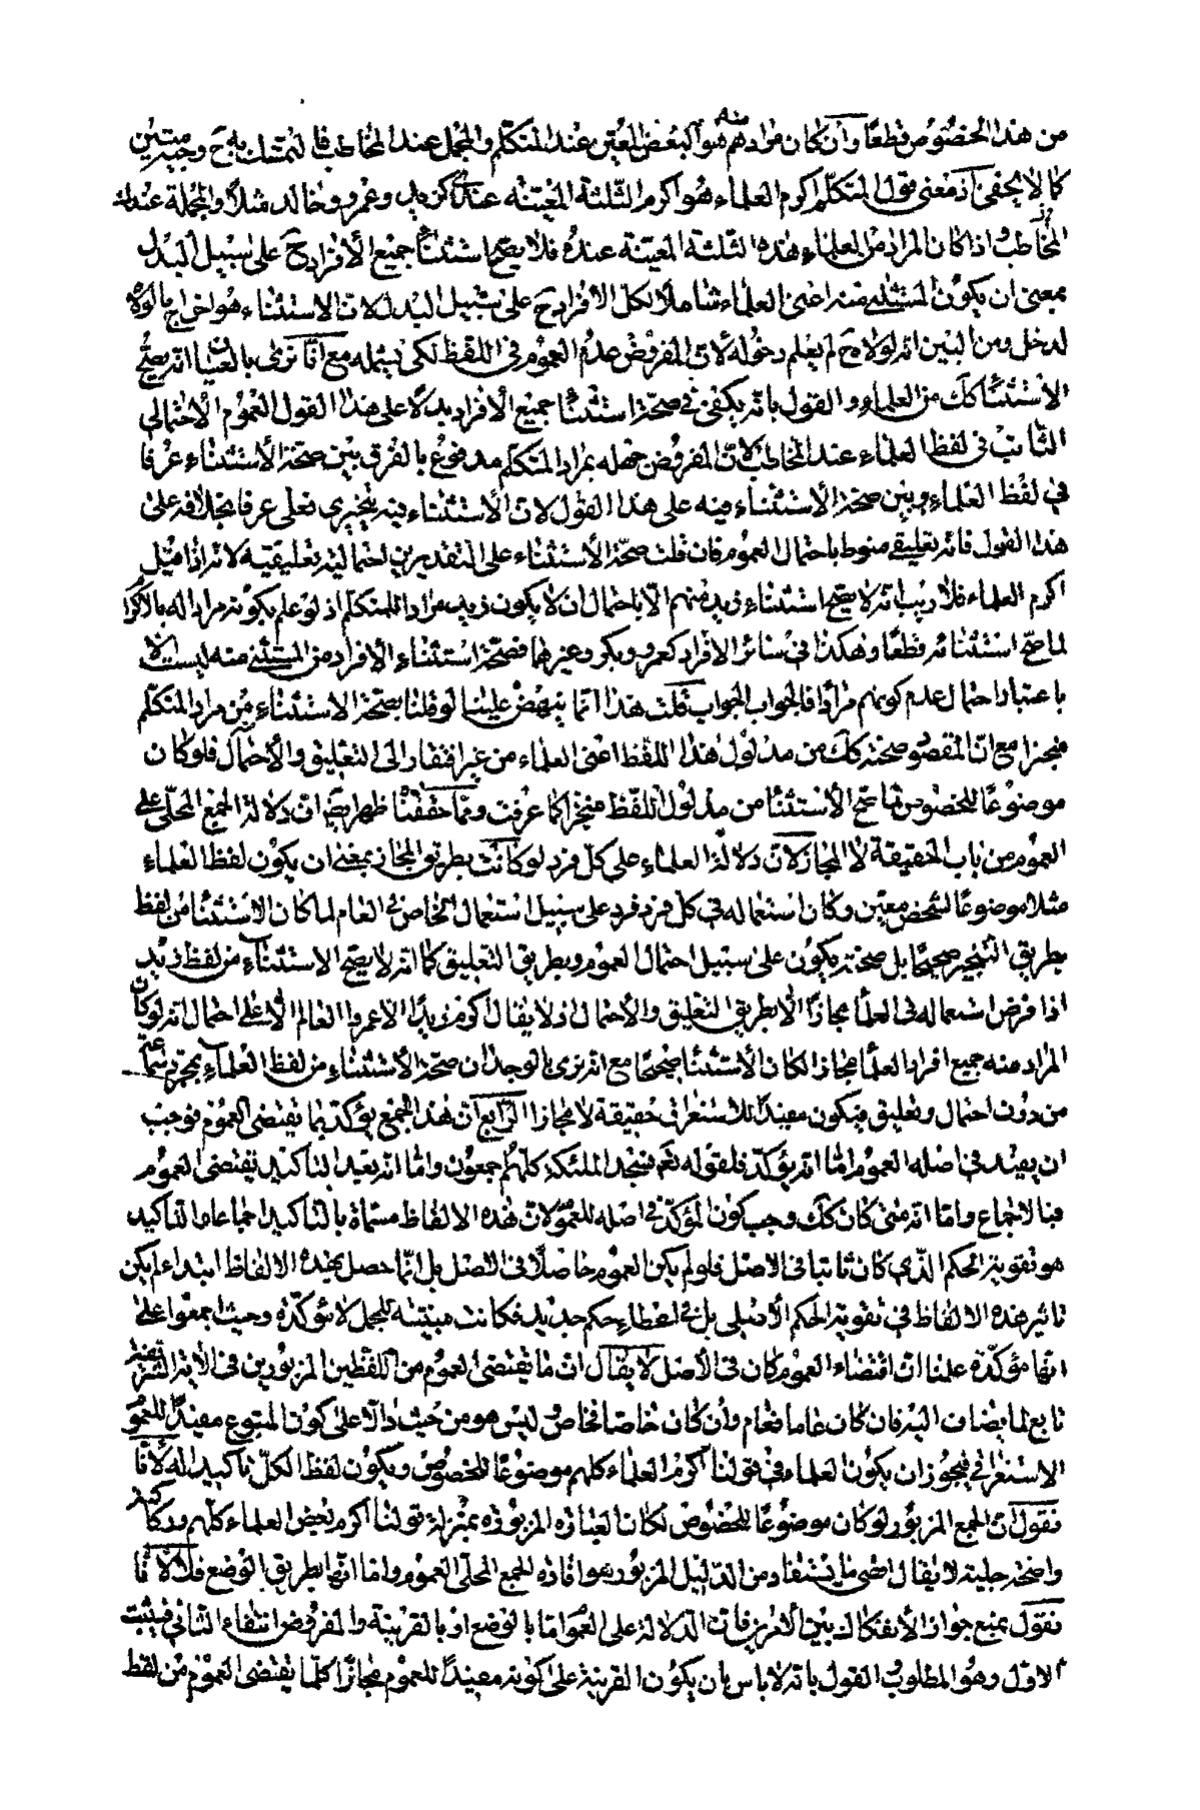 من هذا الخصوص قطعًا وان كان مرادهم منه هو البعض المعيّن عند المتكلّم والمجمل عند المخاطب فالتمسّك به ح وجيه متين
كما لا يخفى اذ معنى قول المتكلّم اكرم العلماء هو اكرم الثلثة المعيّنة عندى كزيد وعمرو وخالد مثلاً والمجملة عندك
المخاطب واذا كان المراد من العلماء هذه الثلثة المعيّنة عنده فلا يصحّ استثناء جميع الأفراد ح على سبيل البدل
بمعنى ان يكون المستثنى منه اعنى العلماء شاملا لكل الافراد ح على سبيل البدل لان الاستثناء هو اخراج ما لولاه
لدخل ومن البيّن انه لولاه ح لم يعلم دخوله لأن المفروض عدم العموم فى اللفظ لكى يشمله مع انّا نرى بالعيان انه يصحّ
الاستثناء كك من العلماء والقول بانه يكفى فى صحّة استثناء جميع الأفراد بدلا على هذا القول العموم الاحتمالى
الثابت فى لفظ العلماء عند المخاطب لان المفروض جهله بمراد المتكلّم مدفوع بالفرق بين صحّة الأستثناء عرفا
فى لفظ العلماء وبين صحّة الأستثناء فيه على هذا القول لان الأستثناء فيه تنجيزى فعلى عرفا بخلافه على
هذا القول فانه تعليقى منوط باحتمال العموم فان قلت صحّة الأستثناء على التقديرين احتمالية تعليقية لانه اذا قيل
اكرم العلماء فلا ريب انه لا يصحّ استثناء زيد منهم الّا باحتمال ان لا يكون زيد مرادا للمتكلّم اذ لو علم بكونه مرادا له بالاكرام
لما صحّ استثنائه قطعًا وهكذا فى سائر الافراد كعمرو وبكر وغيرهما فصحّة استثناء الافراد من المستثنى منه ليست الا
باعتبار احتمال عدم كونهم مرادا فالجواب الجواب قلت هذا انّما ينهض علينا لو قلنا بصحّة الاستثناء من مراد المتكلّم
منجزا مع انّ المقصود صحّته كك من مدلول هذا اللفظ اعنى العلماء من غير افتقار الى التعليق والاحتمال فلو كان
موضوعًا للخصوص لما صحّ الأستثناء من مدلول اللفظ منجزا كما عرفت وممّا حقّقنا ظهر ايضا ان دلالة الجمع المحلّى على
العموم من باب الحقيقة لا المجاز لان دلالة العلماء على كلّ فرد لو كانت بطريق المجاز بمعنى ان يكون لفظ العلماء
مثلا موضوعًا لشخص معيّن وكان استعماله فى كل فرد فرد على سبيل استعمال الخاص فى العام لما كان الاستثناء من لفظ
بطريق التنجيز صحيحًا بل صحّته يكون على سبيل احتمال العموم وبطريق التعليق كما انه لا يصحّ الاستثناء من لفظ زيد
اذا فرض استعماله فى العلماء مجازًا الّا بطريق التعليق والأحتمال اذ لا يقال اكرم زيدًا الا عمروا العالم الا على احتمال انه لو كان
المراد منه جميع افراد العلماء مجازا لكان الأستثناء صحيحًا مع انه نرى بالوجدان صحّة الأستثناء من لفظ العلماء بمجرد سماعه
من دون احتمال وتعليق فيكون مفيدًا للاستغراق حقيقة لا مجازا الرّابع انّ هذا الجمع يؤكّد بما يقتضى العموم فوجب
ان يفيد فى اصله العموم امّا انه يؤكّد فلقوله تع فسجد الملئكة كلّهم اجمعون وامّا انه بعد التأكيد يقتضى العموم
فبالاجماع وامّا انه متى كان كك وجب كون المؤكّد فى اصله للعموم لان هذه الالفاظ مسمّاة بالتاكيد اجماعا والتاكيد
هو تقوية الحكم الّذى كان ثابتا فى الاصل فلو لم يكن العموم حاصلًا فى الاصل بل انّما حصل بهذه الالفاظ ابتداء لم يكن
تاثير هذه الالفاظ فى تقوية الحكم الأصلى بل فى اعطاء حكم جديد فكانت مبيّنة للمجمل لا مؤكّدة وحيث اجمعوا على
انّها مؤكّدة علمنا انّ اقتضاء العموم كان فى الأصل لا يقال انّ ما يقتضى العموم من اللّفظين المزبورين فى الآية الشريفة
تابع لما يضاف اليه فان كان عاما فعام وان كان خاصا فخاص وليس هو من حيث دالا على كون المتبوع مفيدًا للعموم
الاستغراقى فيجوز ان يكون العلماء فى قولنا اكرم العلماء كلهم موضوعًا للخصوص ويكون لفظ الكلّ تاكيدا له لأنّا
نقول انّ الجمع المزبور لو كان موضوعًا للخصوص لكان العبارة المزبورة بمنزلة قولنا اكرم بعض العلماء كلّهم وركاكته
واضحة جلية لا يقال اقصى ما يستفاد من الدّليل المزبور هو افادة الجمع المحلّى العموم وامّا انّها بطريق الوضع فلا لأنّا
نقول بمنع جواز الأنفكاك بين الأمرين فان الدلالة على العموم امّا بالوضع او بالقرينة والمفروض انتفاء الثانى فيثبت
الاوّل وهو المطلوب القول بانه لا باس بان يكون القرينة على كونه مفيدًا للعموم مجازًا كلّما يقتضى العموم من لفظ